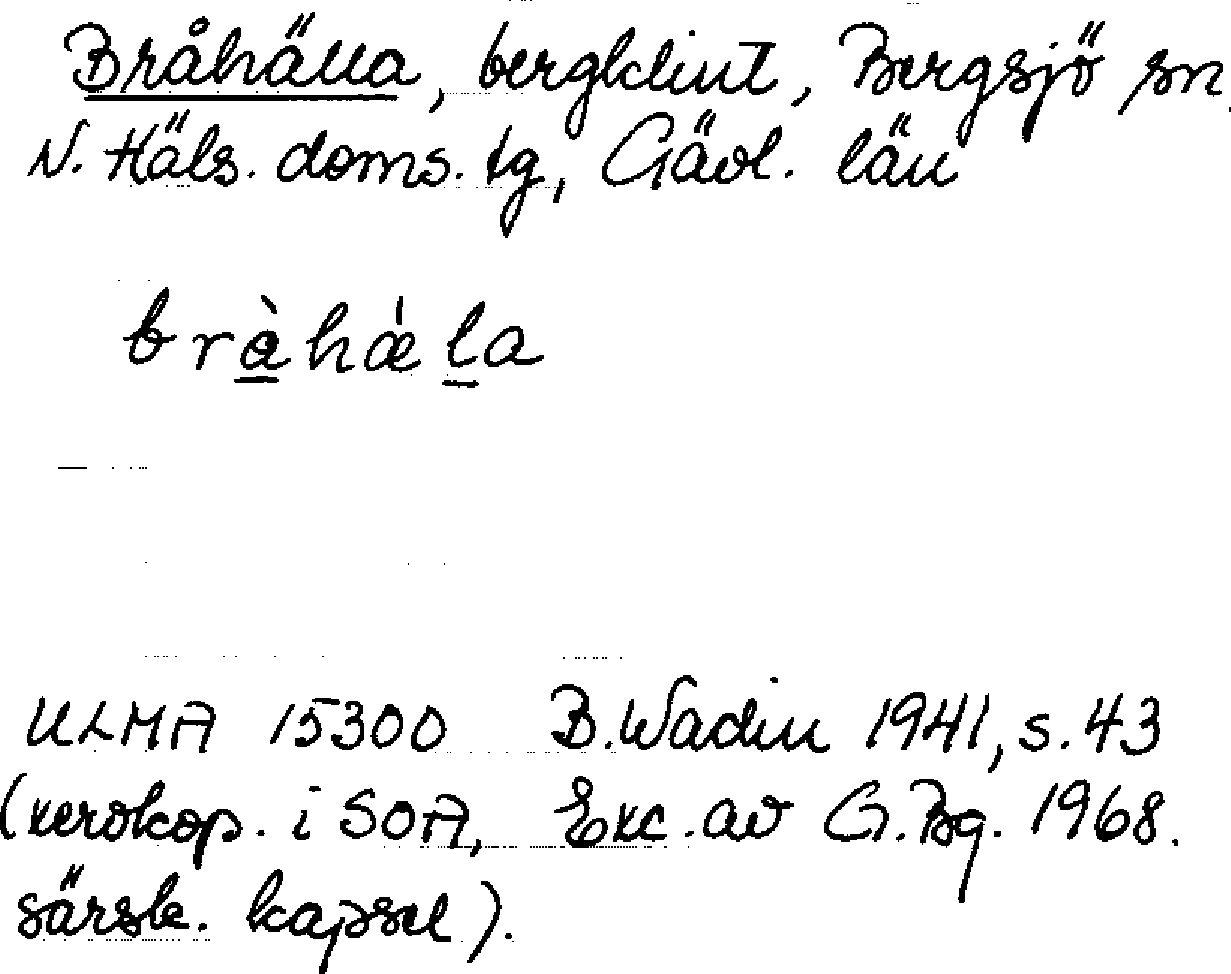 Bråhälla, bergklint, Bergsjö sn
N. Häls. doms. tg, Gävl. län
bràhǽla
ULMA 15300 B. Wadin 1941, s. 43
(xerokop. i SOA, Exc. av G. Bg. 1968.
särsk. kapsel).